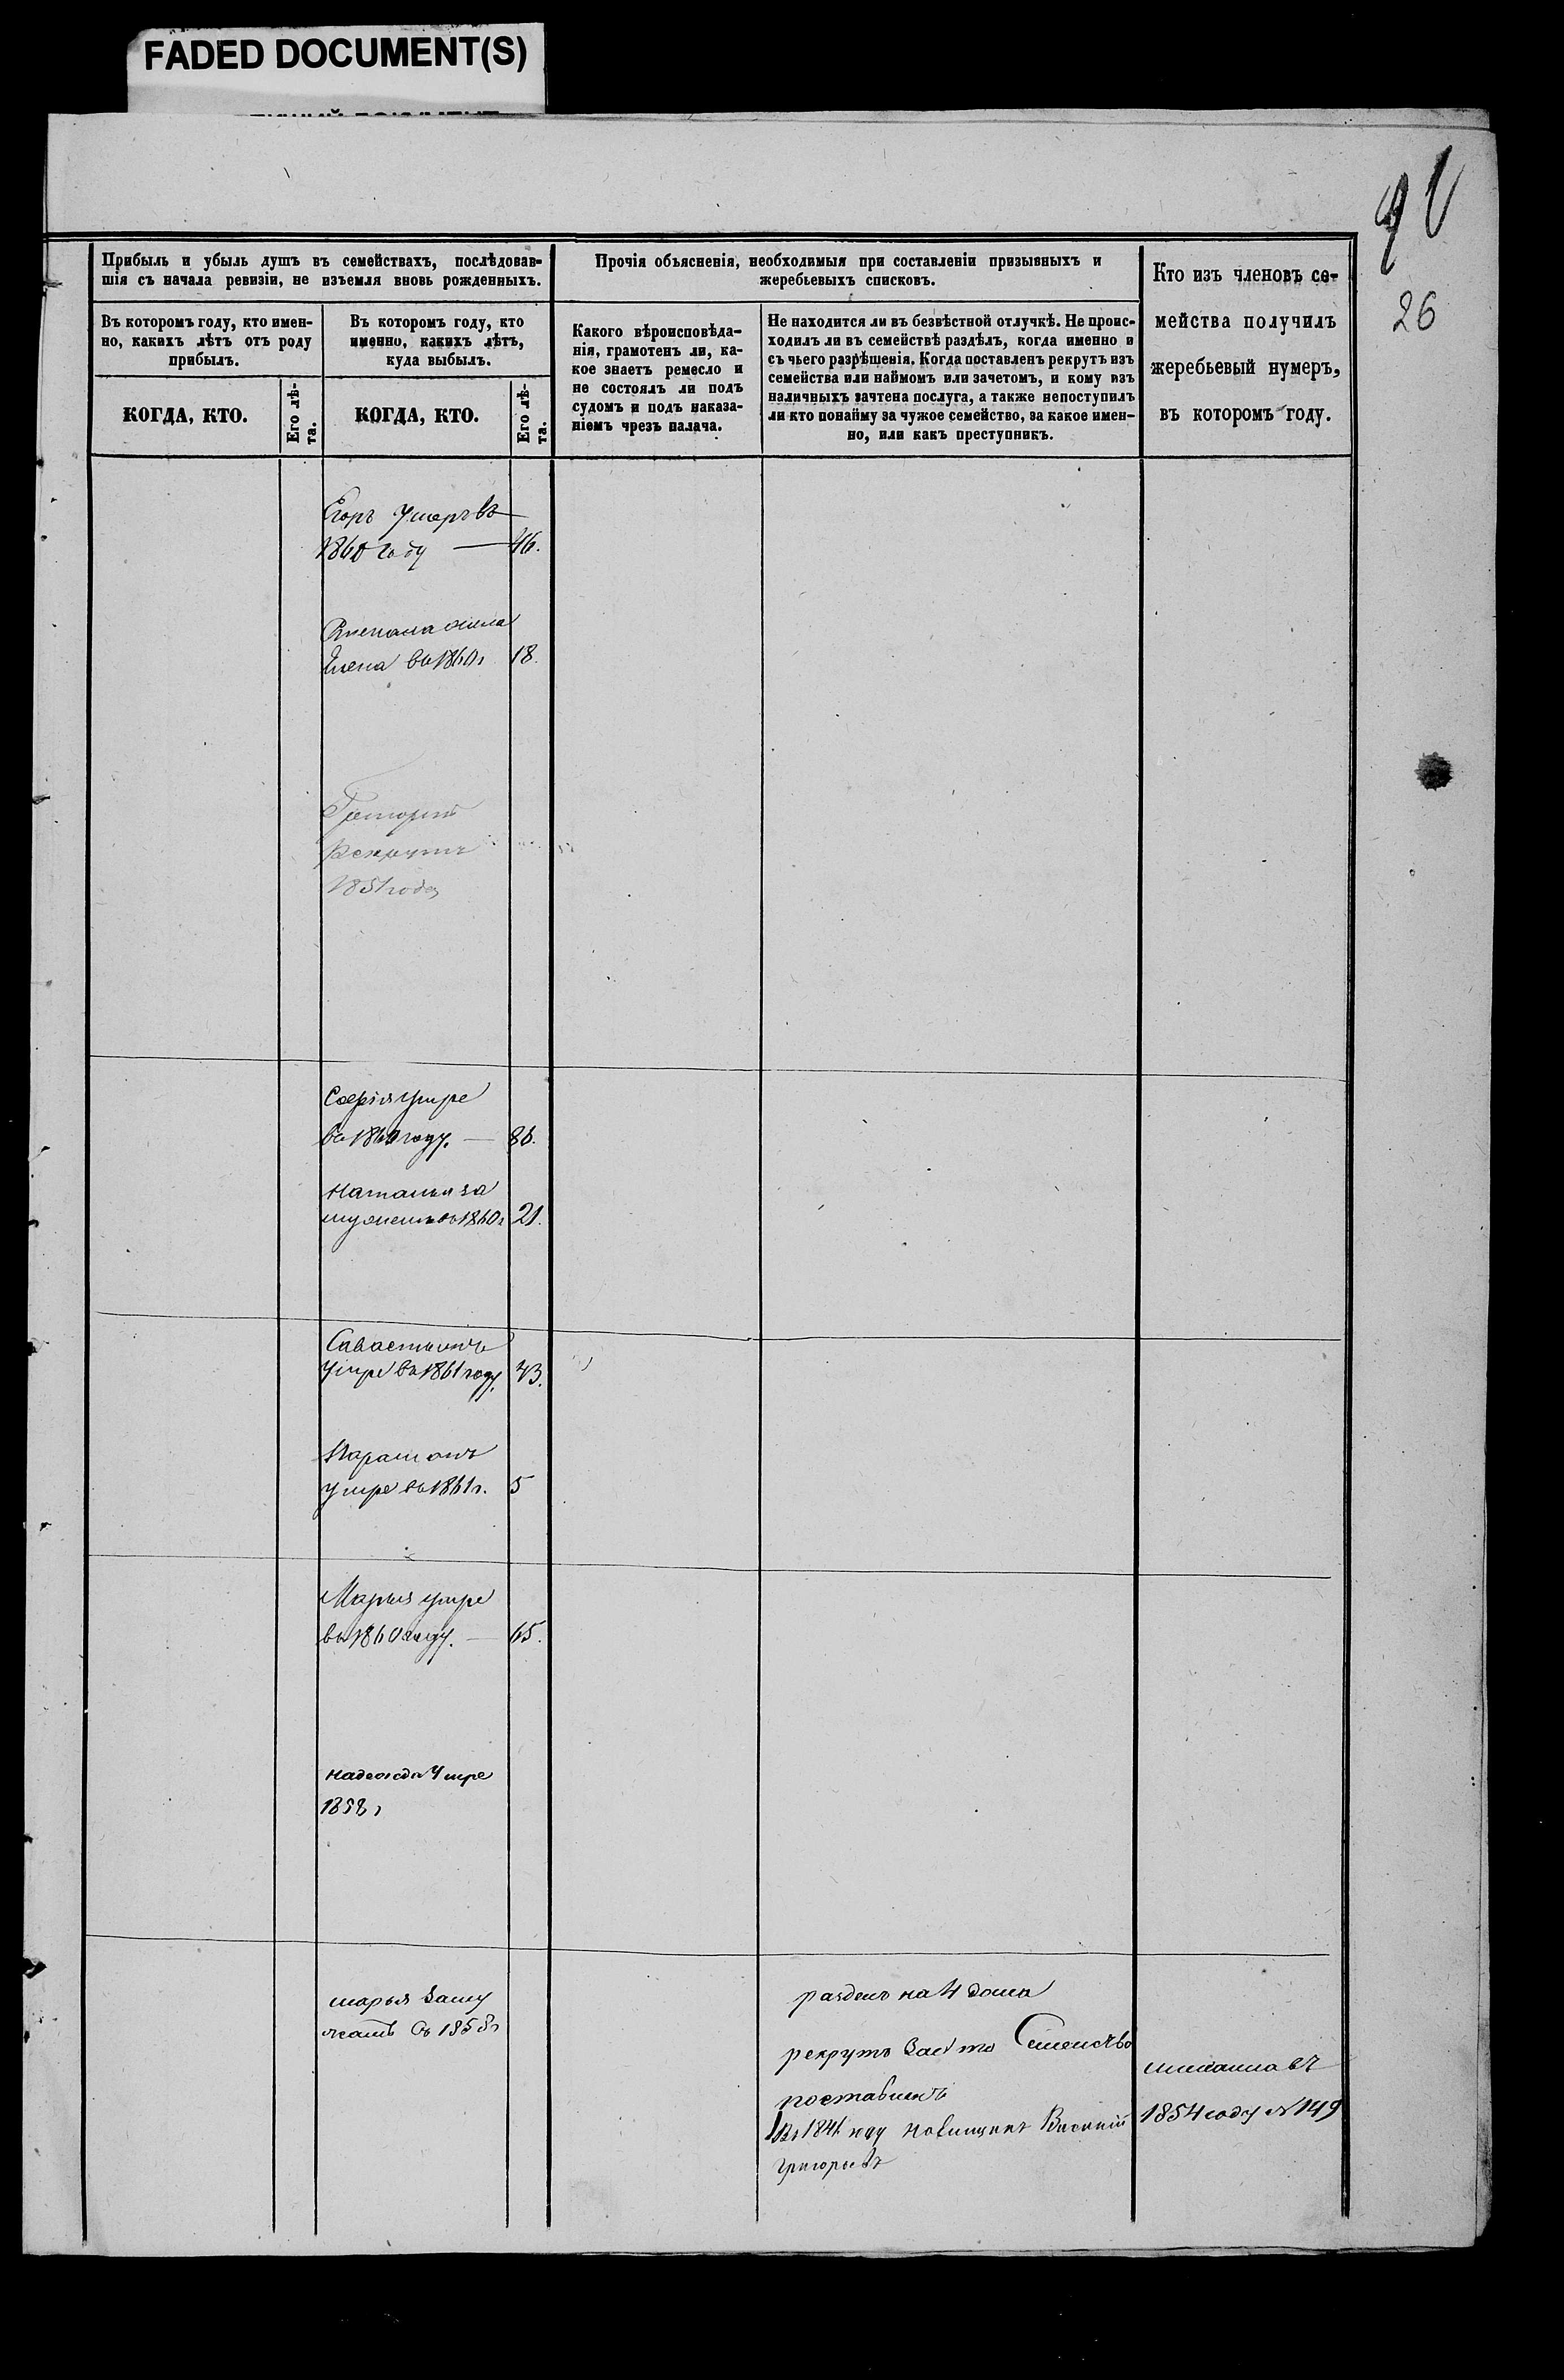 FADED DOCUMENT(S)
90
26
Прибыль и убыль душъ въ семействахъ, послѣдовав-
шія съ начала ревизіи, не изъемля вновь рожденныхъ.
Прочія объясненія, необходимыя при составленіи призывныхъ и
жеребьевыхъ списковъ.
Кто изъ членовъ се-
мейства получилъ
жеребьевый нумеръ,
въ которомъ году.
Въ которомъ году, кто имен-
но, какихъ лѣтъ отъ роду
прибылъ.
Въ которомъ году, кто
именно, какихъ лѣтъ,
куда выбылъ.
Какого вѣроисповѣда-
нія, грамотенъ ли, ка-
кое знаетъ ремесло и
не состоялъ ли подъ
судомъ и подъ наказа-
ніемъ чрезъ палача.
Не находится ли въ безвѣстной отлучкѣ. Не проис-
ходилъ ли въ семействѣ раздѣлъ, когда именно и
съ чьего разрѣшенія. Когда поставленъ рекрутъ изъ
семейства или наймомъ или зачетомъ, и кому изъ
наличныхъ зачтена послуга, а также непоступилъ
ли кто понайму за чужое семейство, за какое имен-
но, или какъ преступникъ.
КОГДА, КТО.
Его лѣ-
та.
КОГДА, КТО.
Его лѣ-
та.
Егоръ Умеръ въ
1860 году — 46.
жена во 1860г 18.
Григорий
Рекрутъ
1851 года
Софія умре
во 1860 году. — 86.
Наталья за
мужемъ во 1860г 21.
Савастьянъ
Умре въ 1861 году. 43.
Парамонъ
умре во 1861г. 5
Марья умре
во 1860 году. — 65.
Надежда Умре
1858г
марья Заму
жемъ съ 1858г
разделъ на 4 дома
рекрутъ За Семейство
поставленъ
Въ 1841 году Василий
григорьевъ
михаила въ
1854 году № 149